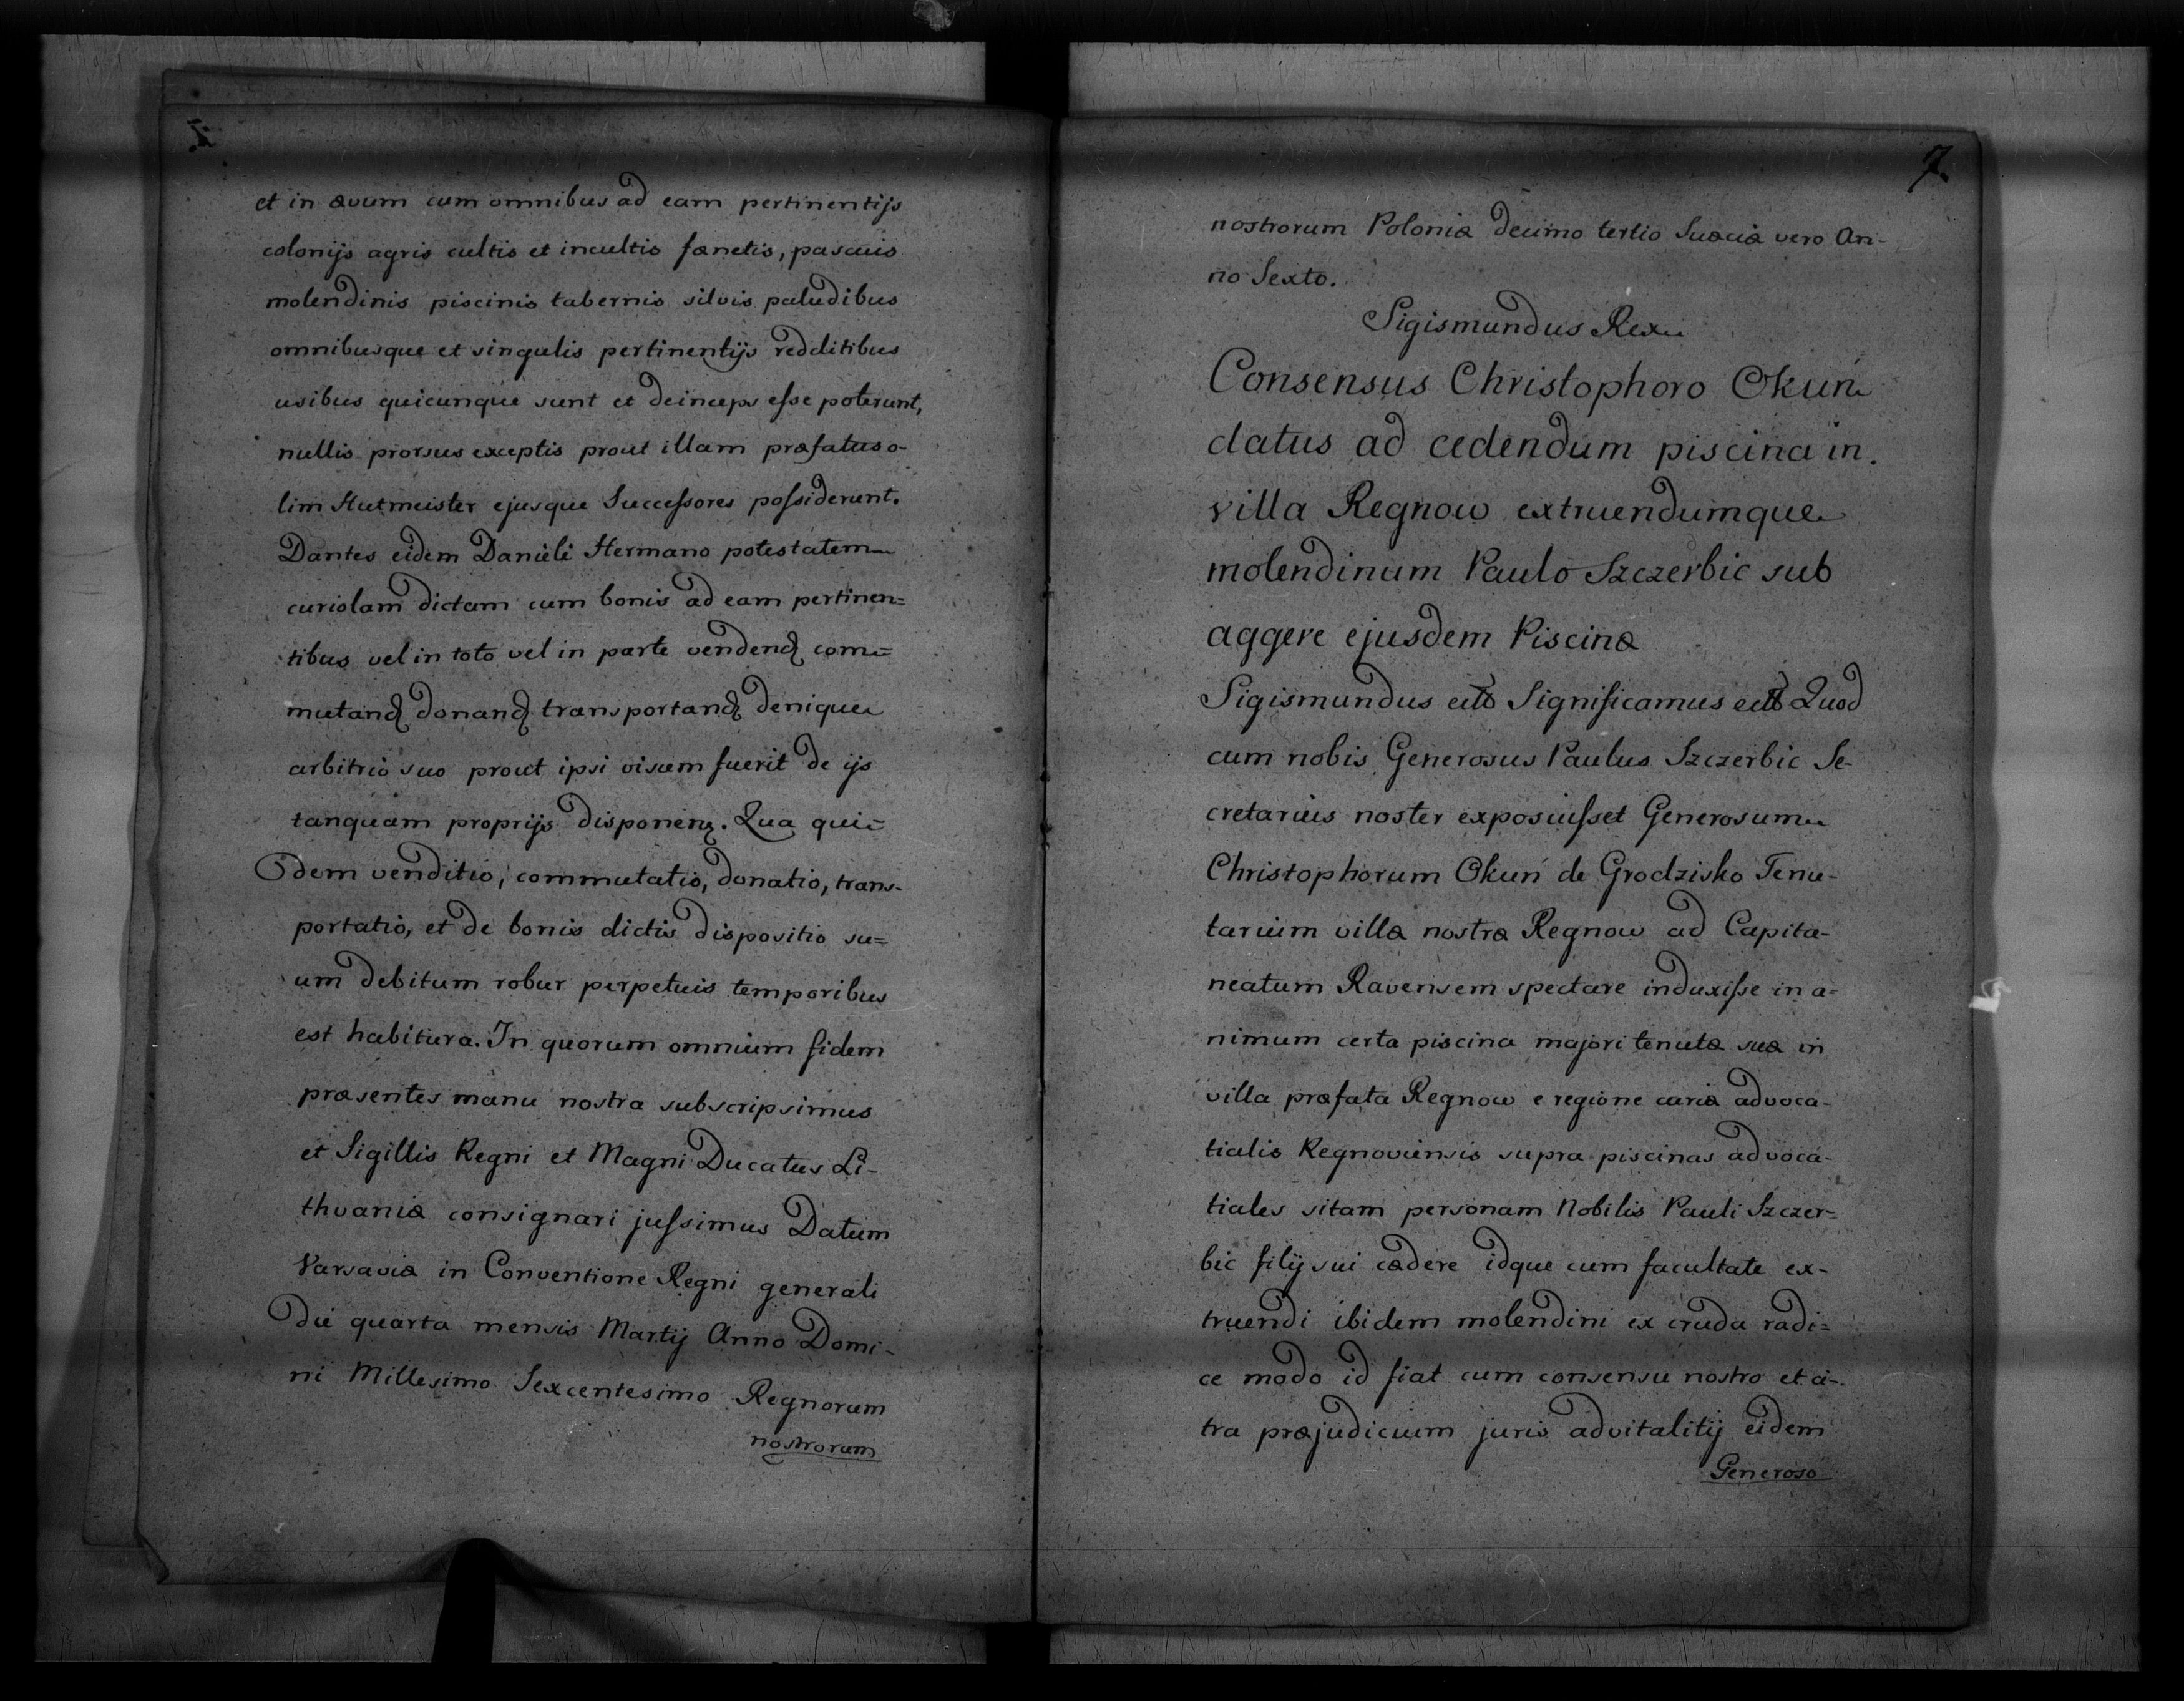 et in ævum cum omnibus ad eam pertinentijs
colonijs agris cultis et incultis fænetis, pascuis
molendinis piscinis tabernis silvis paludibus
omnibusque et singulis pertinentijs redditibus
usibus quicunque sunt et deinceps esse poterunt,
nullis prorsus exceptis prout illam præfatus o-
lim Hutmeister ejusque Successores possiderunt.
Dantes eidem Danieli Hermano potestatem
curiolam dictam cum bonis ad eam pertinen=
tibus vel in toto vel in parte vendend com=
mutand donand transportand denique
arbitrio suo prout ipsi visum fuerit de ijs
tanquam proprijs disponen. Qua qui=
dem venditio, commutatio, donatio, trans-
portatio, et de bonis dictis dispositio su=
um debitum robur perpetuis temporibus
est habitura. In quorum omnium fidem
præsentes manu nostra subscripsimus
et Sigillis Regni et Magni Ducatus Li-
thvaniæ consignari jussimus Datum
Varsaviæ in Conventione Regni generali
Die quarta mensis Martij Anno Domi-
ni Millesimo Sexcentesimo Regnorum
nostrorum
7.
nostrorum Poloniæ decimo tertio Suæciæ vero An-
no Sexto.
Sigismundus Rex
Consensus Christophoro Okuń
datus ad cedendum piscina in
villa Regnow extruendumque
molendinum Paulo Szczerbic sub
aggere ejusdem Piscinæ
Sigismundus Significamus Quod
cum nobis Generosus Paulus Szczerbic Se-
cretarius noster exposuisset Generosum
Christophorum Okuń de Grodzisko Tenu-
tarium villæ nostræ Regnow ad Capita-
neatum Ravensem spectare induxisse in a=
nimum certa piscina majori tenutæ suæ in
villa præfata Regnow e regione curiæ advoca-
tialis Regnoviensis supra piscinas advoca-
tiales sitam personam Nobilis Pauli Szczer-
bic filij sui cædere idque cum facultate ex-
truendi ibidem molendini ex cruda radi=
ce modo id fiat cum consensu nostro et ci-
tra præjudicium juris advitalitij eidem
Generoso